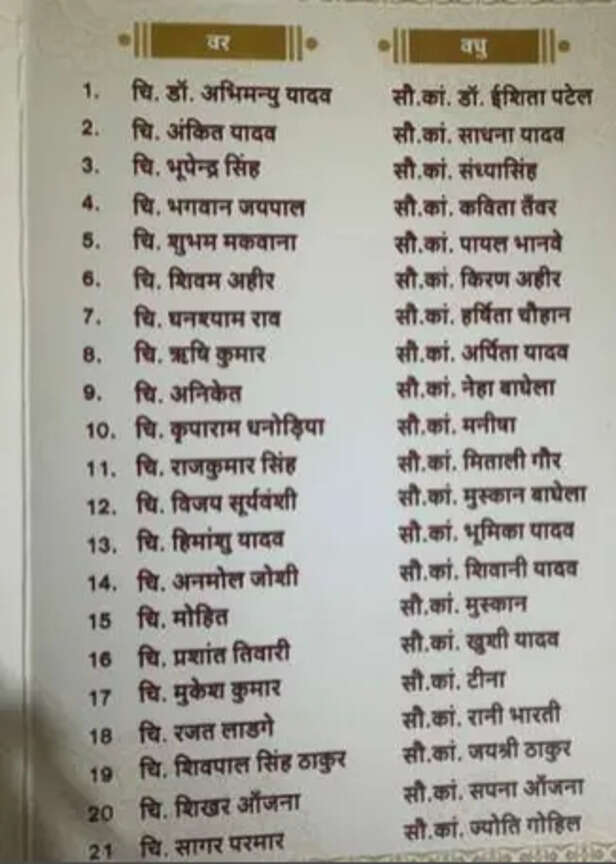 वर वधु
1. चि. डॉ. अभिमन्यु यादव सौ.कां. डॉ. ईशिता पटेल
2. चि. अंकित यादव सौ.कां. साधना यादव
3. चि. भूपेन्द्र सिंह सौ.कां. संध्यासिंह
4. चि. भगवान जयपाल सौ.कां. कविता तँवर
5. चि. शुभम मकवाना सौ.कां. पायल भानवे
6. चि. शिवम अहीर सौ.कां. किरण अहीर
7. चि. घनश्याम राव सौ.कां. हर्षिता चौहान
8. चि. ऋषि कुमार सौ.कां. अर्पिता यादव
9. चि. अनिकेत सौ.कां. नेहा बाघेला
10. चि. कृपाराम धनोड़िया सौ.कां. मनीषा
11. चि. राजकुमार सिंह सौ.कां. मिताली गौर
12. चि. विजय सूर्यवंशी सौ.कां. मुस्कान बाघेला
13. चि. हिमांशु यादव सौ.कां. भूमिका यादव
14. चि. अनमोल जोशी सौ.कां. शिवानी यादव
15 चि. मोहित सौ.कां. मुस्कान
16 चि. प्रशांत तिवारी सौ.कां. खुशी यादव
17 चि. मुकेश कुमार सौ.कां. टीना
18 चि. रजत लाडगे सौ.कां. रानी भारती
19 चि. शिवपाल सिंह ठाकुर सौ.कां. जयश्री ठाकुर
20 चि. शिखर आँजना सौ.कां. सपना आँजना
21 चि. सागर परमार सौ.कां. ज्योति गोहिल